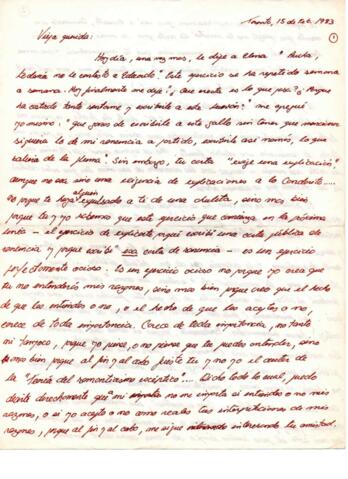 Toronto, 15 de Feb. 1983
①
Vieja querida:
Hoy día, una vez más, le dije a Elena "Pucha,
todavía no le contesto a Eduardo". Este ejercicio se ha repetido semana
a semana. Hoy finalmente me dije: "¿Qué mierda es lo que pasa? ¿Porque
ha costado tanto sentarme y escribirle a este huevón?" me
yo mismo: "que ganas de escribirle a este gallo sin tener que mencionar
siquiera lo de mi renuncia a partido, escribirle así nomás, lo que
saliera de la pluma". Sin embargo, tu carta "exije una explicación",
aunque no sea sino una exigencia de explicaciones a lo Condorito....
No porque te haya alguien expulsado a ti de una chuleta, sino mas bien
porque tu y yo sabemos que este ejercicio que comienza en la próxima
línea - el ejercicio de explicarte porqué escribí una carta pública de
renuncia y porque escribí esa carta de renuncia - es un ejercicio
perfectamente ocioso. Es un ejercicio ocioso no porque yo crea que
tu me entenderás mis razones, sino mas bien porque creo que el hecho
de que las entiendas o no, o el hecho de que las aceptes o no,
carece de toda importancia. Carece de toda importancia, no tanto
ni tampoco, porque yo pense, o no piense que tu puedas entender, sino
mas bien porque al fin y al cabo fuiste tu y no yo el autor de
la "Teoría del romanticismo escéptico".... Dicho todo lo cual, puedo
decirte directamente que mi no me importa si entiendes o no mis
razones, o si yo acepto o no como reales tus interpretaciones de mis
razones, porque al fin y al cabo, me sigue interesando tu amistad.